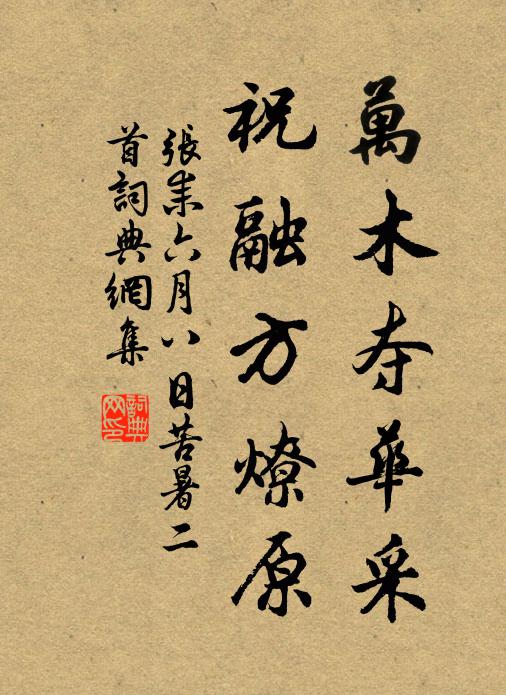 萬木夺華采
祝融方燎原
張耒六月八日苦暑二
首詞典網集
詞典
网印